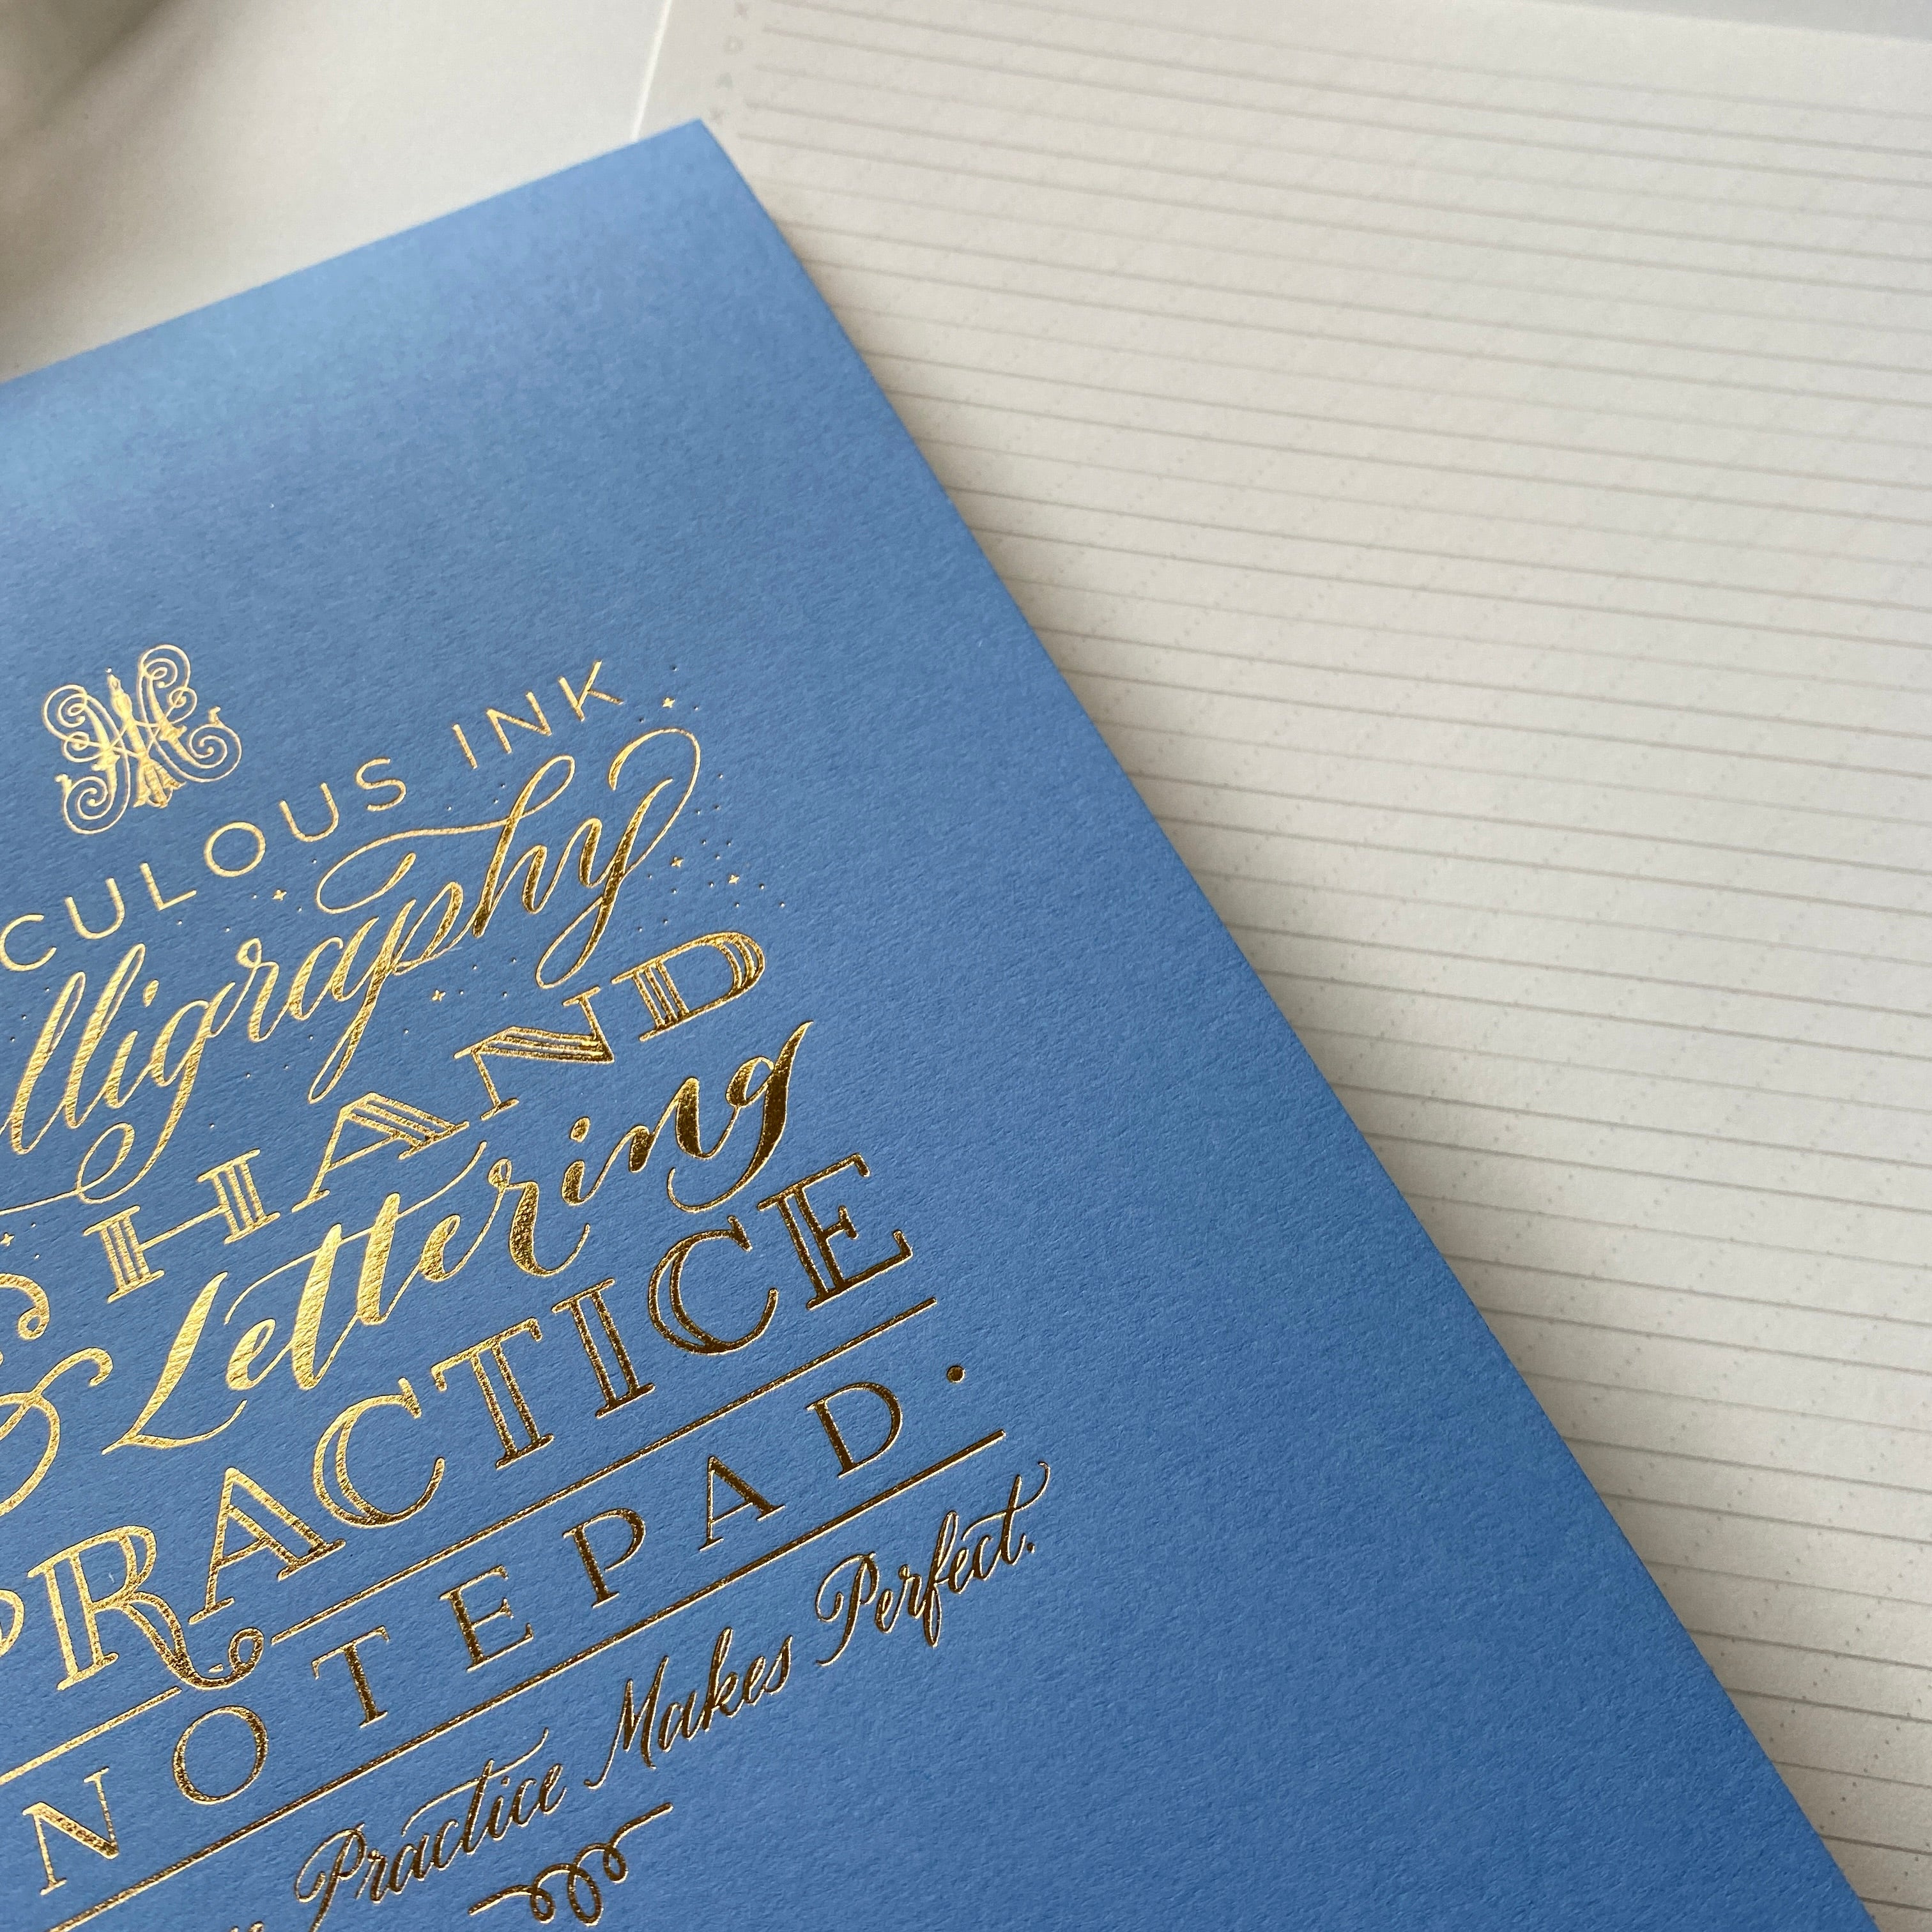 CULOUS INK
lligraphy
S HAND
& Lettering
PRACTICE
NOTEPAD.
Practice Makes Perfect.